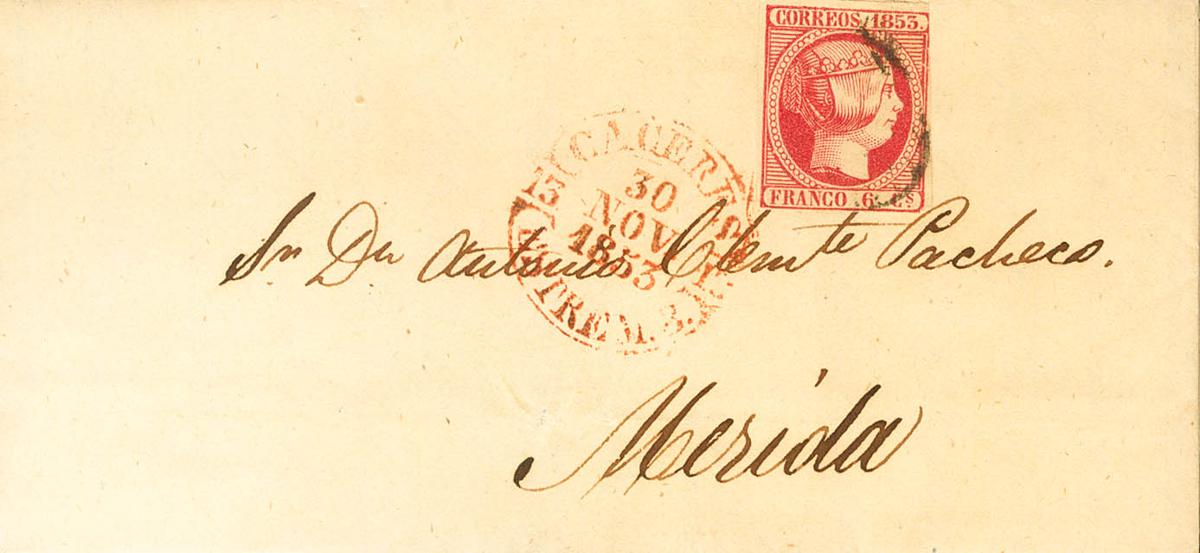 CORREOS 1853.
FRANCO 6 Cs
CACERES
30
NOV
1853
Sr Dn Antonio Clemte Pacheco.
Merida